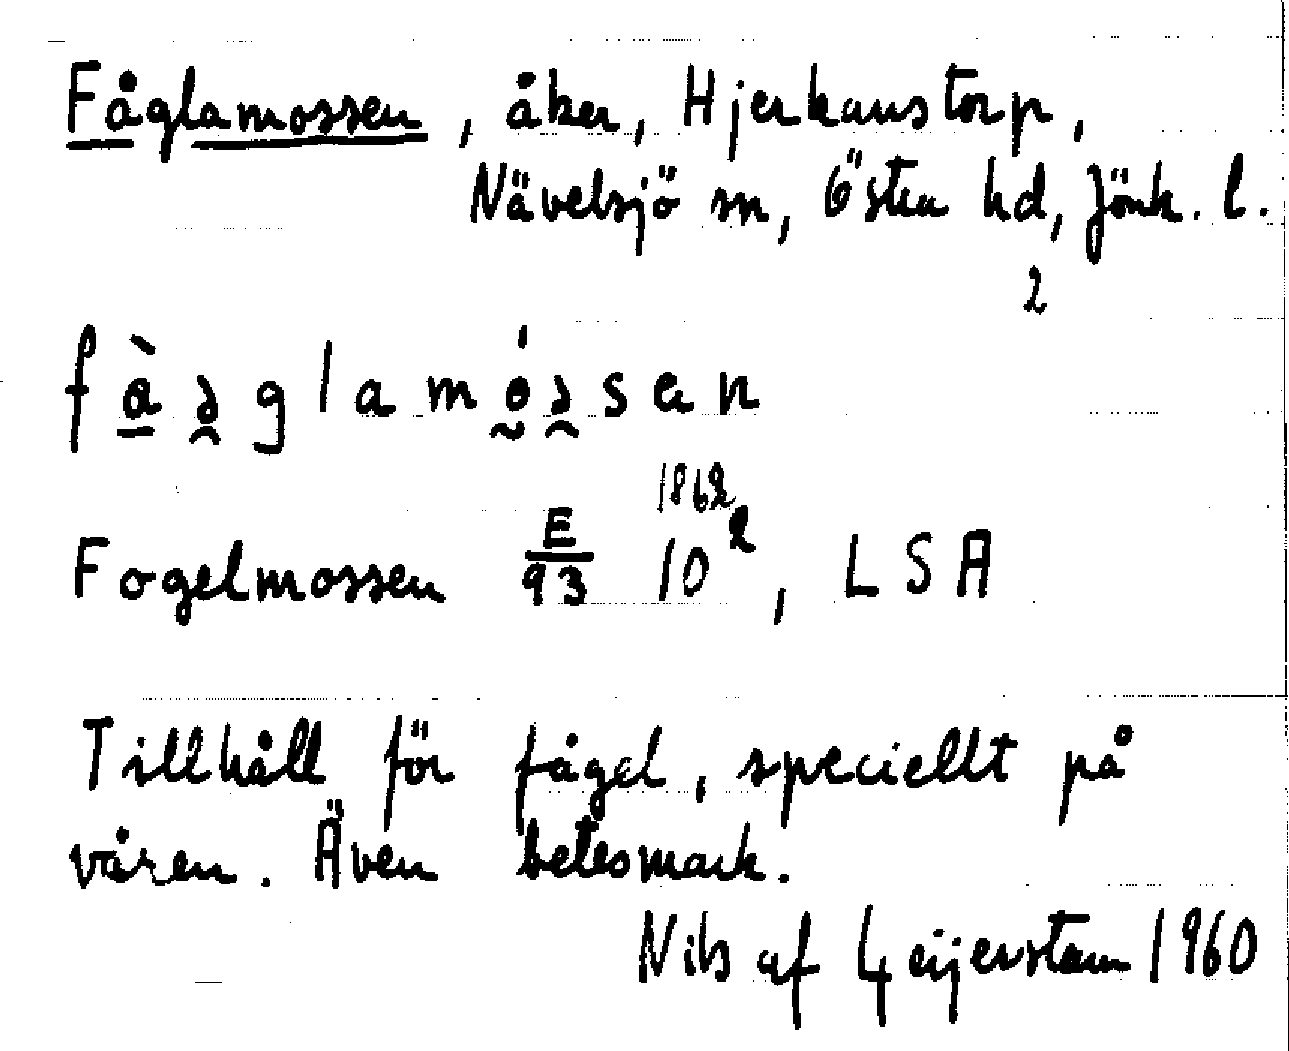 Fåglamossen, åker, Hjerkanstorp,
Nävelsjö sn, Östra hd, Jönk. l.
2
fàəglamóəsen
1862
Fogelmossen E/93 10², LSA
Tillhåll för fågel, speciellt på
våren. Även betesmark.
Nils af Geijerstam 1960